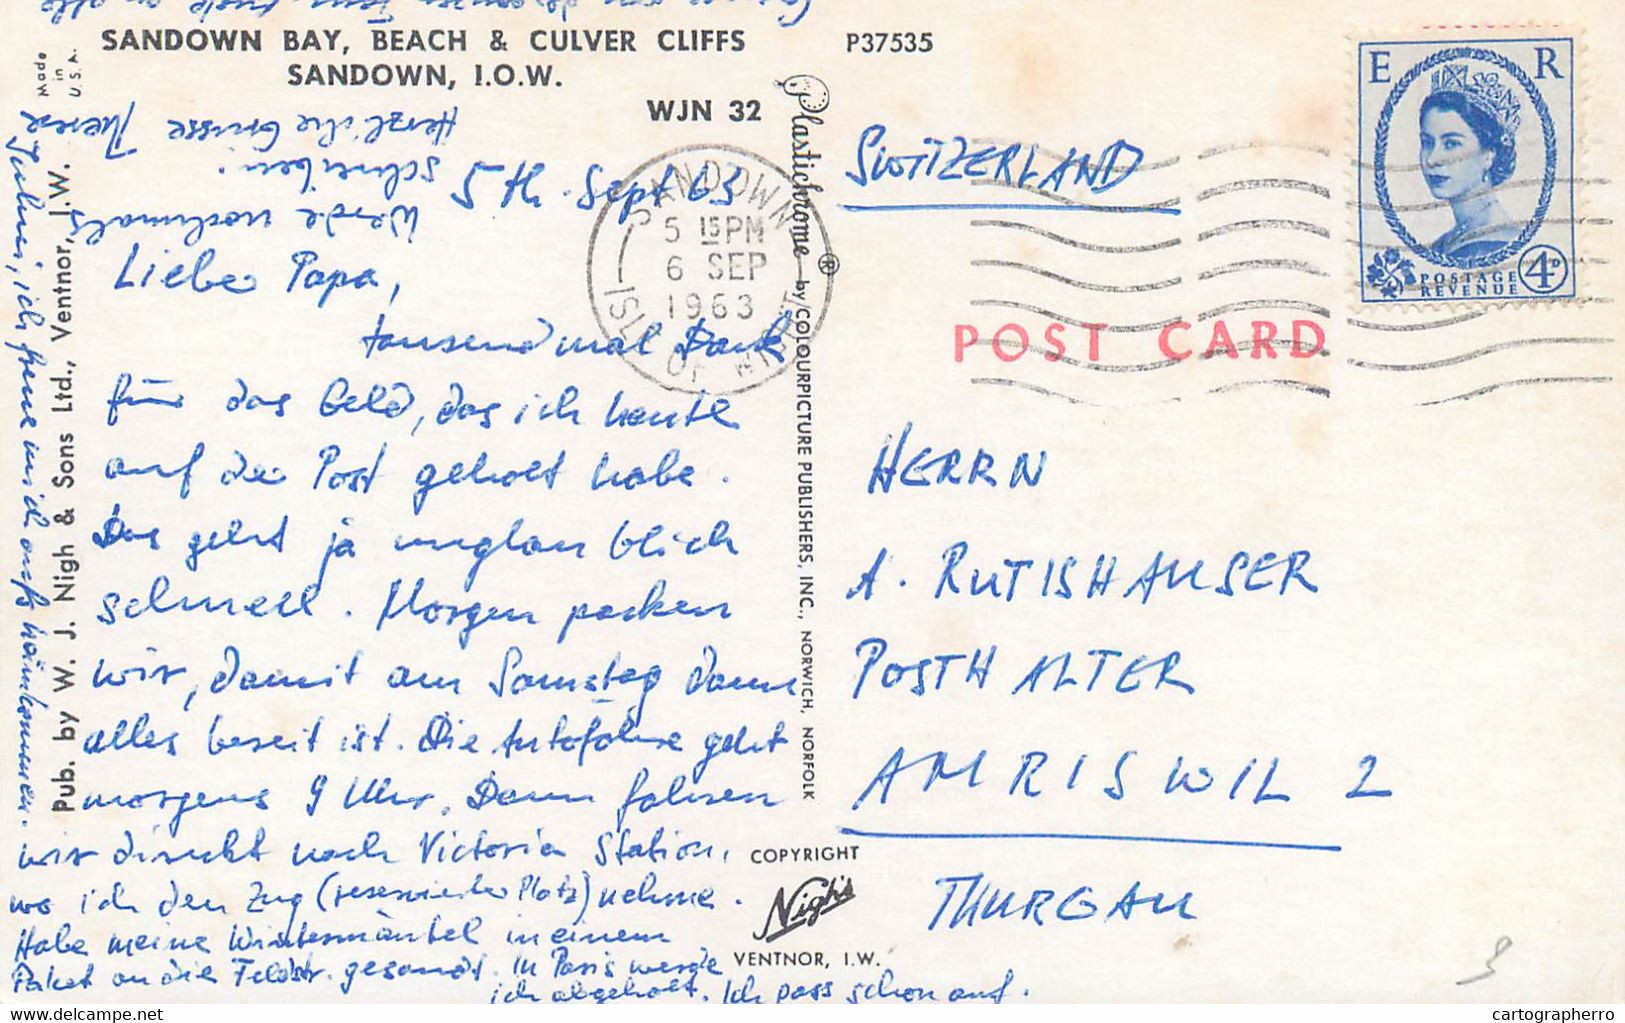 SANDOWN BAY, BEACH & CULVER CLIFFS
SANDOWN, I.O.W.
P37535
WJN 32
Made
in
U.S.A.
Pub. by W. J. Nigh & Sons Ltd., Ventnor, I.W.
Plastichrome ® by COLOURPICTURE PUBLISHERS, INC., NORWICH, NORFOLK
5th. Sept 63
Liebe Papa,
tausend mal Dank
für das Geld, das ich heute
auf der Post geholt habe.
Das geht ja unglaublich
schnell. Morgen packen
wir, damit am Samstag dann
alles bereit ist. Die Autofahre geht
morgens 9 Uhr. Dann fahren
wir direkt nach Victoria Station,
wo ich den Zug (reservierter Platz) nehme.
Habe meine Wintermäntel in einem
Paket an die Feldstr. gesandt. In Paris werde
ich abgeholt. Ich pass schon auf.
ich freue mich aufs heimkommen.
Werde nochmals
schreiben.
Herzliche Grüsse Therese
SANDOWN
5 15 PM
6 SEP
1963
ISLE OF WIGHT
SWITZERLAND
E R
POSTAGE
REVENUE
4D
POST CARD
HERRN
A. RUTISHAUSER
POSTHALTER
AMRISWIL 2
THURGAU
COPYRIGHT
Nigh's
VENTNOR, I.W.
www.delcampe.net
cartographerro